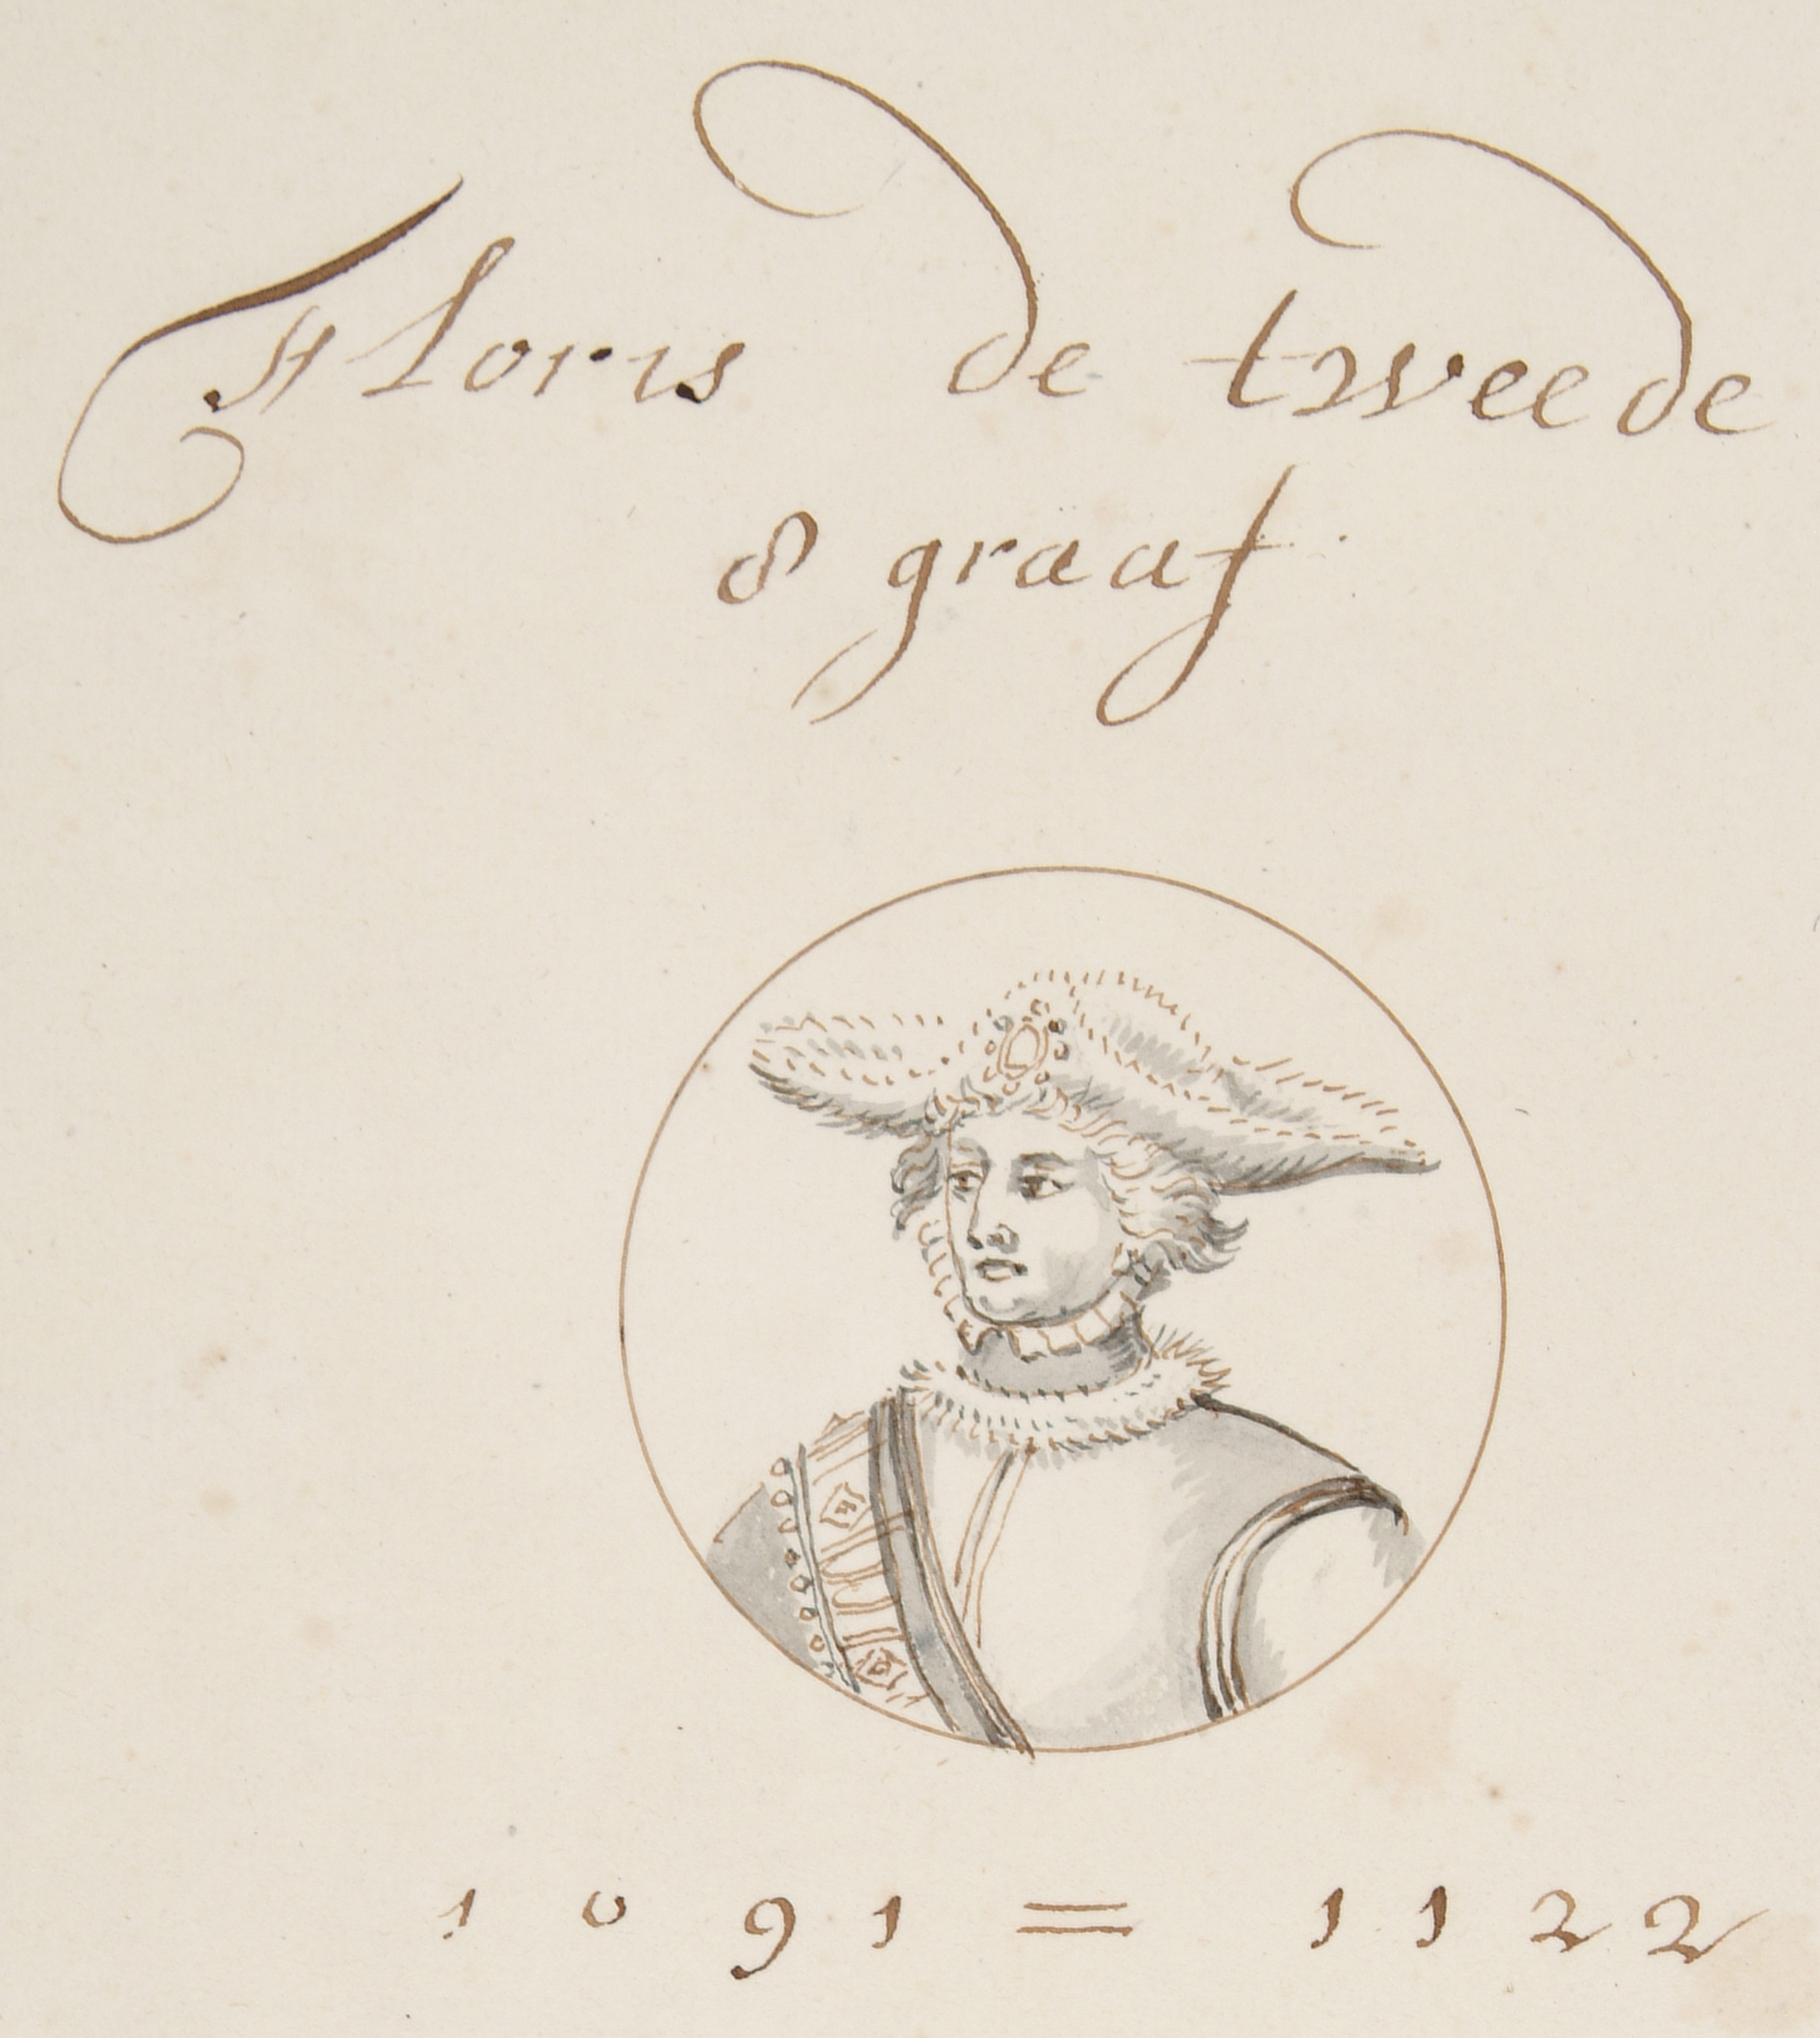 Floris de tweede
8 graaf
1091 = 1122